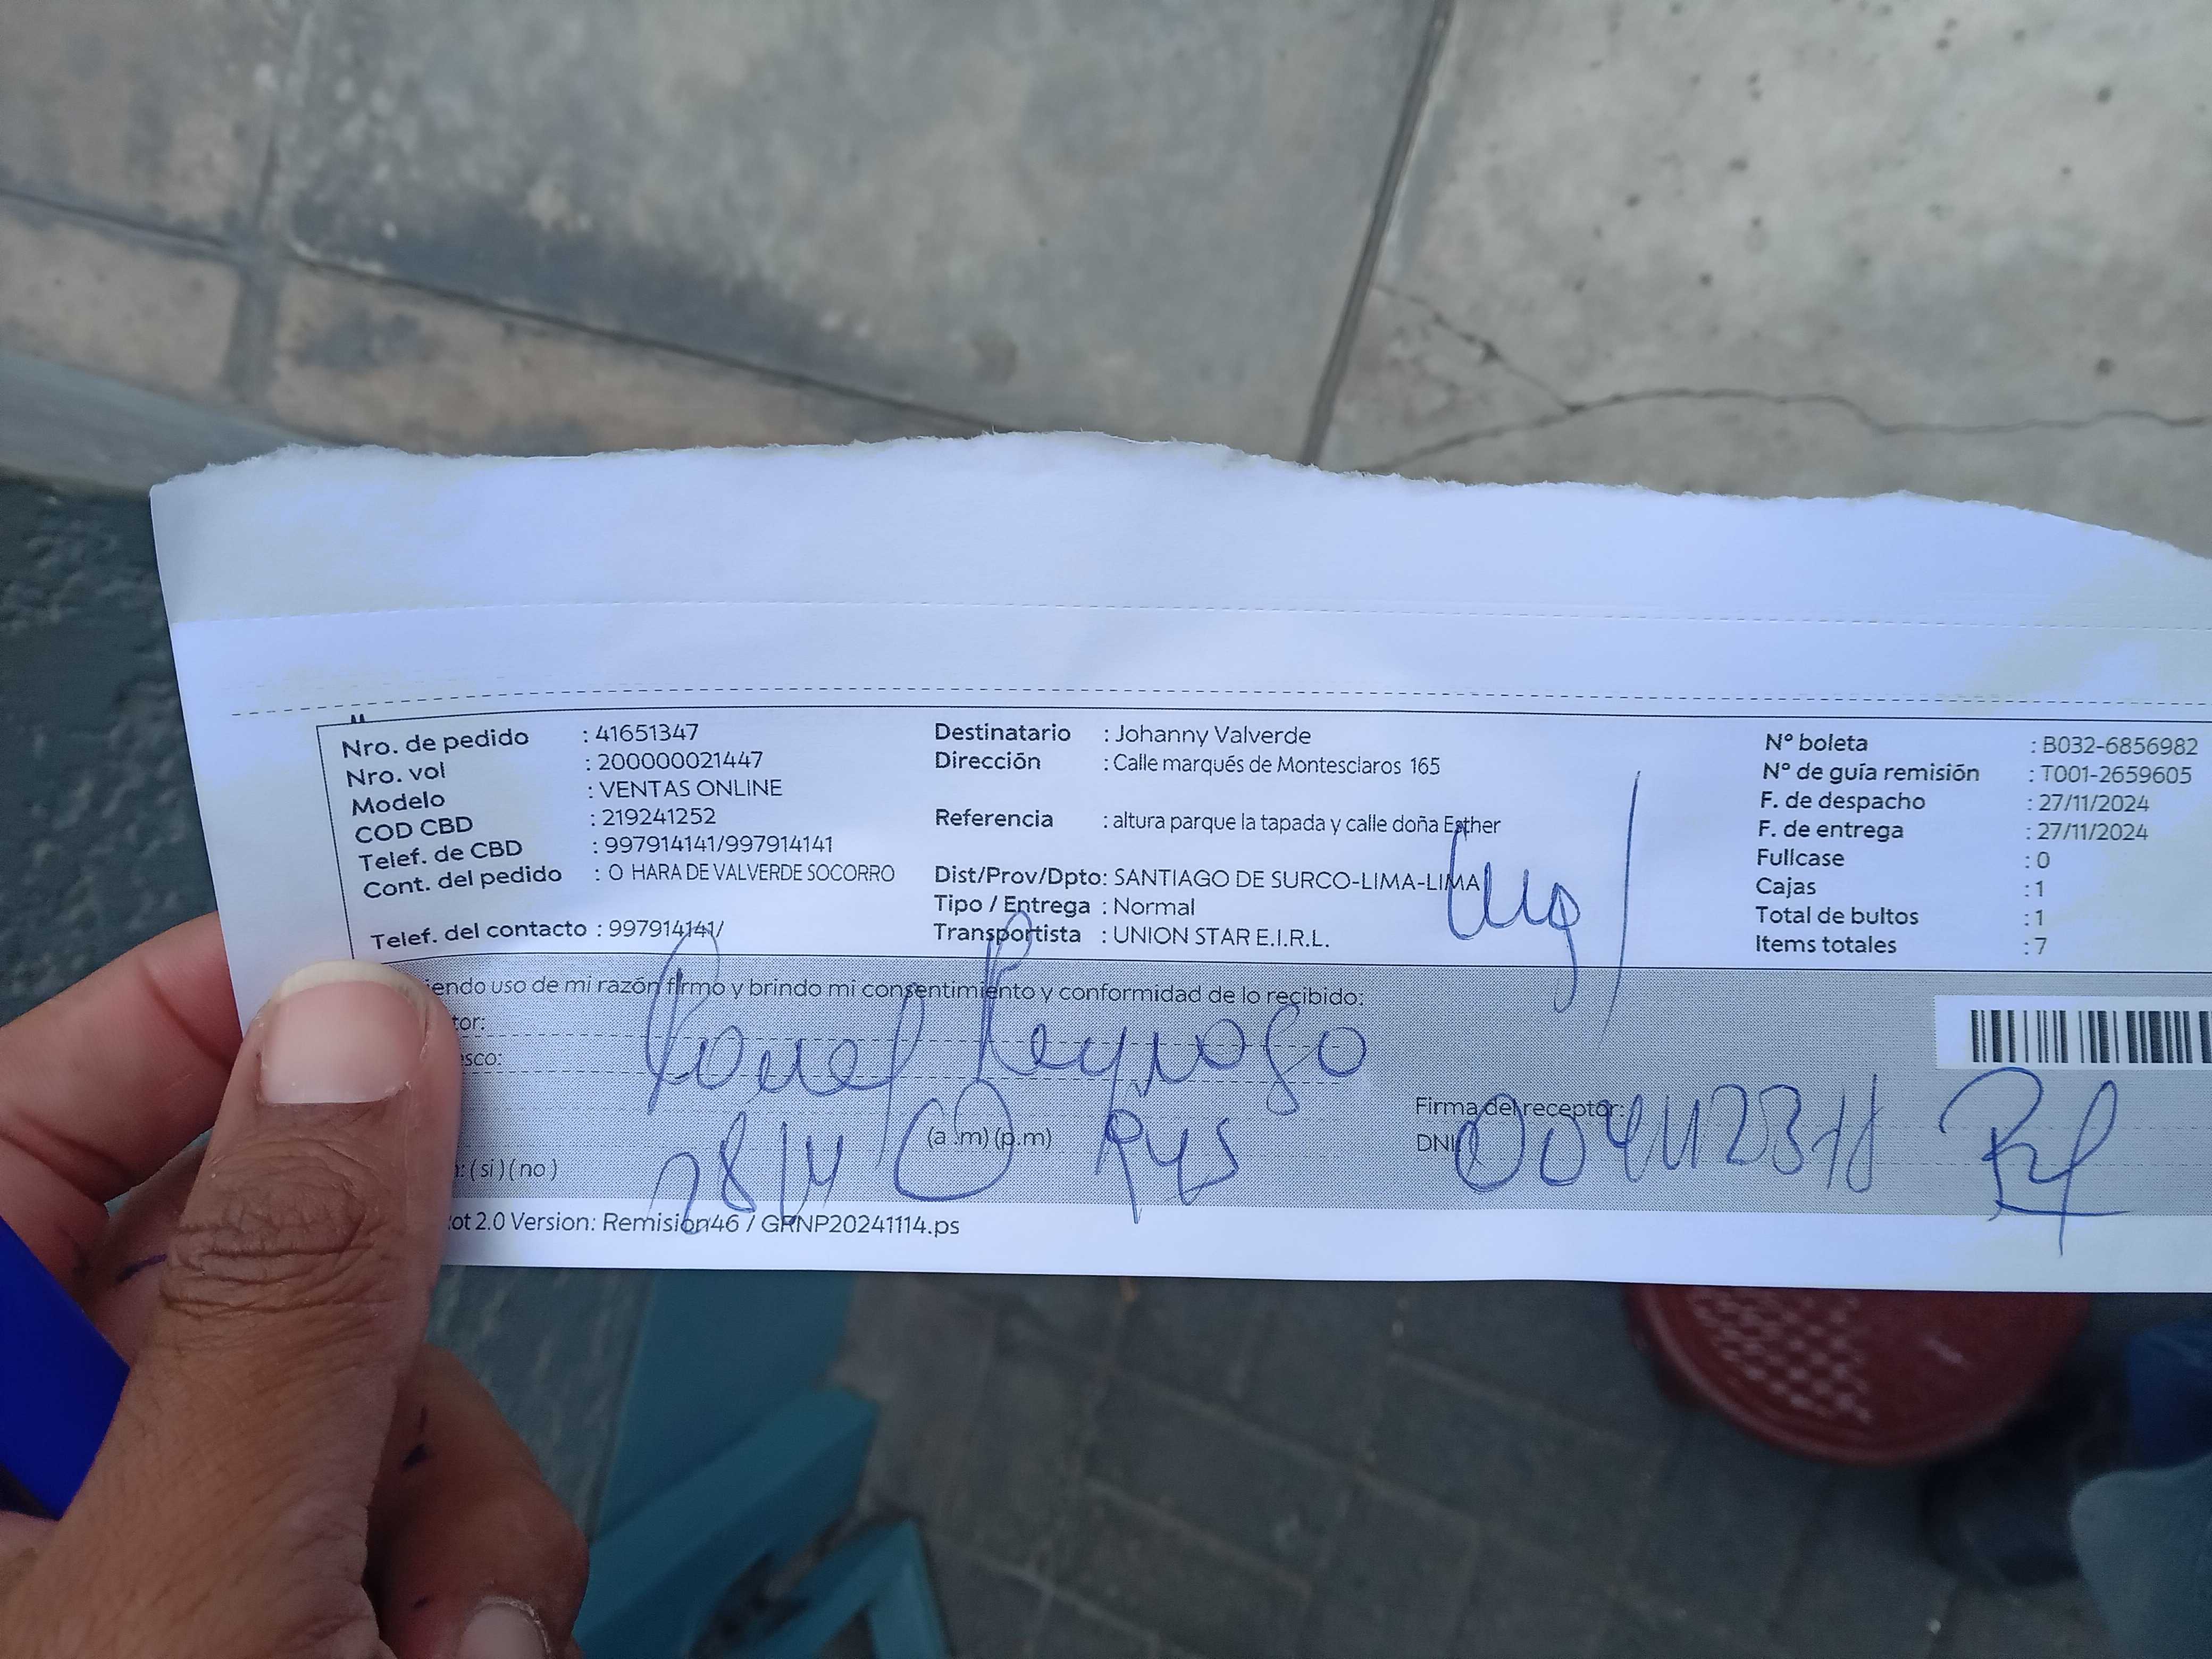 Nro. de pedido : 41651347
Nro. vol : 200000021447
Modelo : VENTAS ONLINE
COD CBD : 219241252
Telef. de CBD : 997914141/997914141
Cont. del pedido : O HARA DE VALVERDE SOCORRO
Telef. del contacto : 997914141/
Destinatario : Johanny Valverde
Dirección : Calle marqués de Montesclaros 165
Referencia : altura parque la tapada y calle doña Esther
Dist/Prov/Dpto: SANTIAGO DE SURCO-LIMA-LIMA
Tipo / Entrega : Normal
Transportista : UNION STAR E.I.R.L.
N° boleta : B032-6856982
N° de guía remisión : T001-2659605
F. de despacho : 27/11/2024
F. de entrega : 27/11/2024
Fullcase : 0
Cajas : 1
Total de bultos : 1
Items totales : 7
iendo uso de mi razón firmo y brindo mi consentimiento y conformidad de lo recibido:
tor:
sco:
Reynoso
(a.m) (p.m)
Firma del receptor:
DNI
: ( si ) ( no )
ot 2.0 Version: Remision46 / GRNP20241114.ps